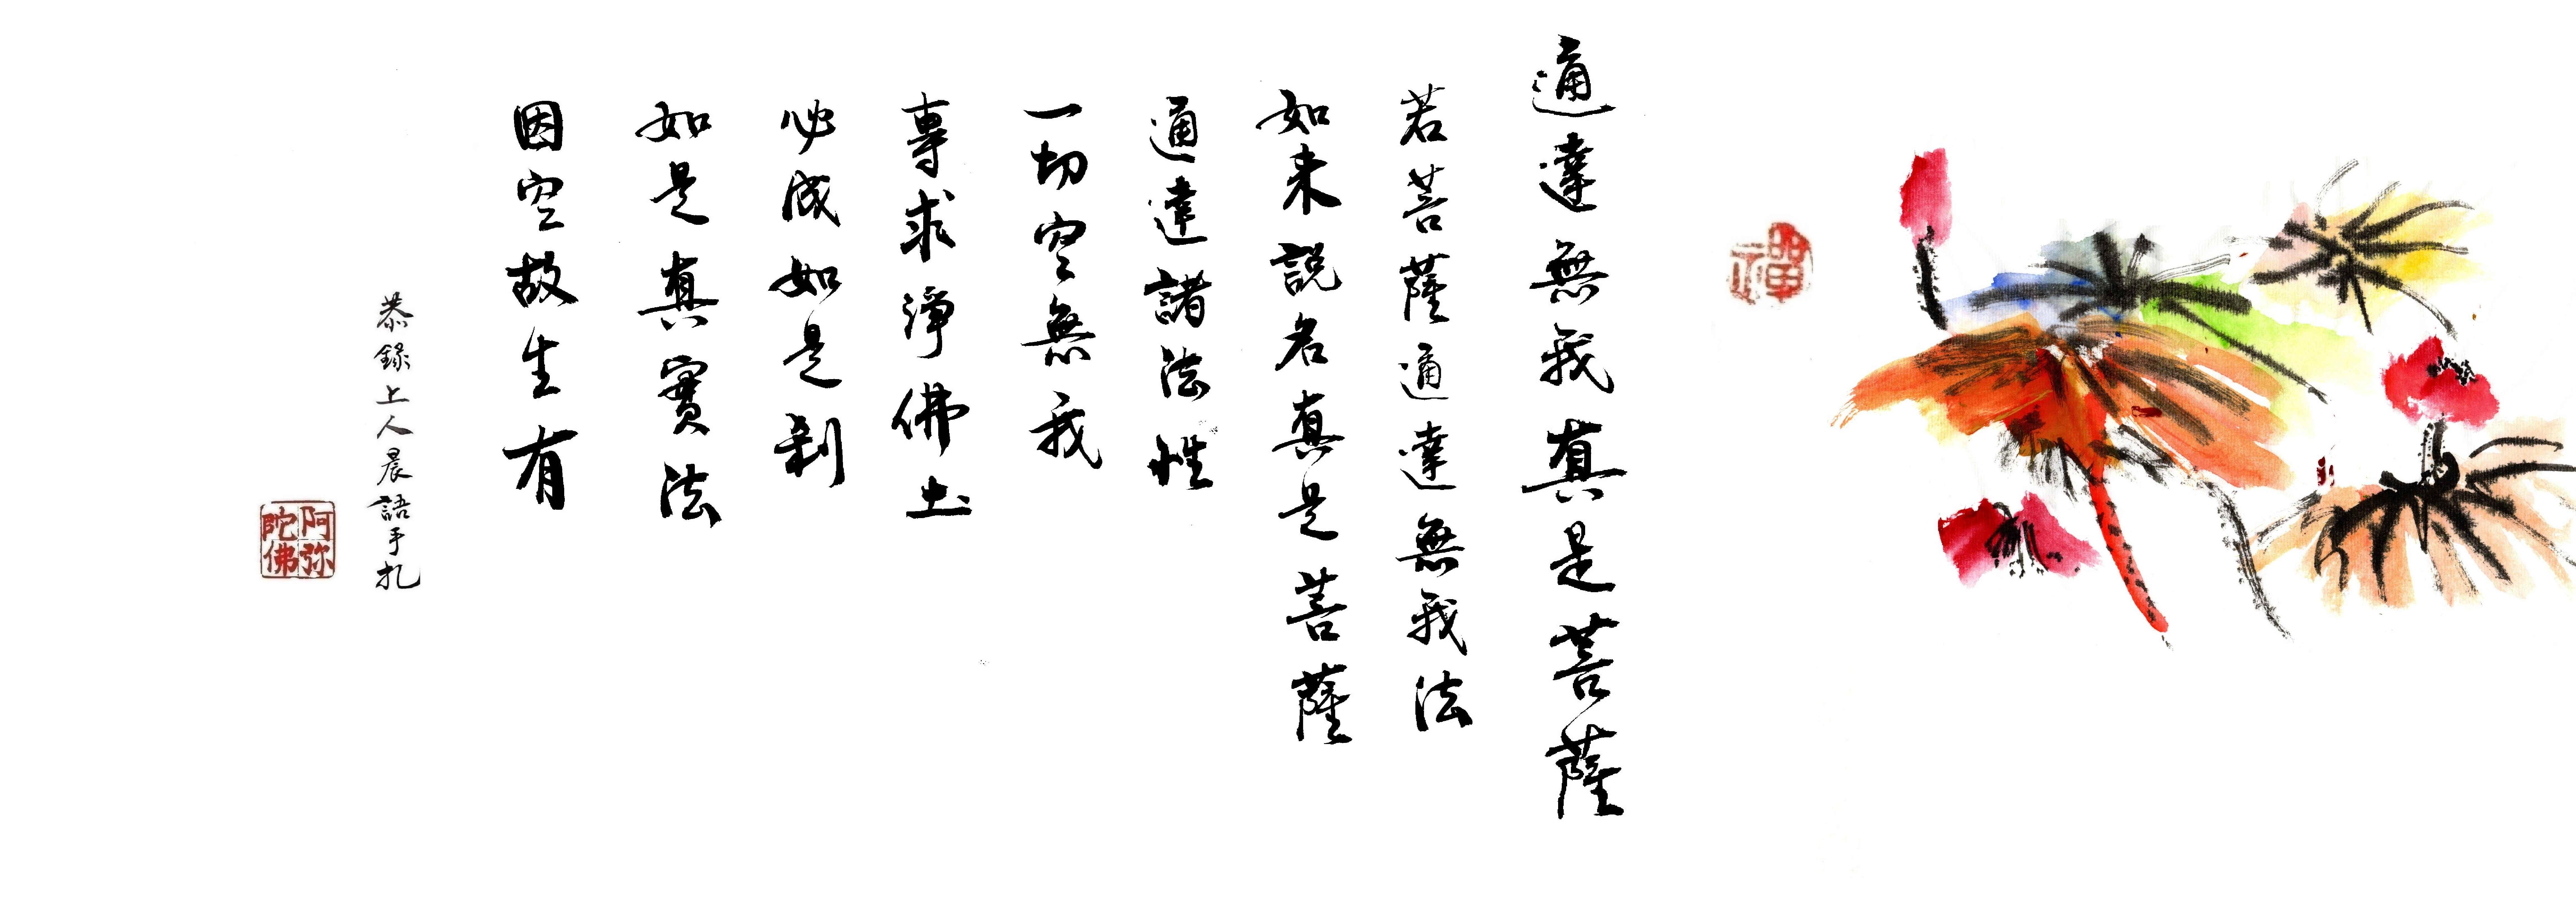 禪
通達無我真是菩薩
若菩薩通達無我法
如来説名真是菩薩
通達諸法性
一切空無我
專求淨佛土
必成如是刹
如是真實法
因空故生有
恭錄上人晨語手札
阿弥陀佛